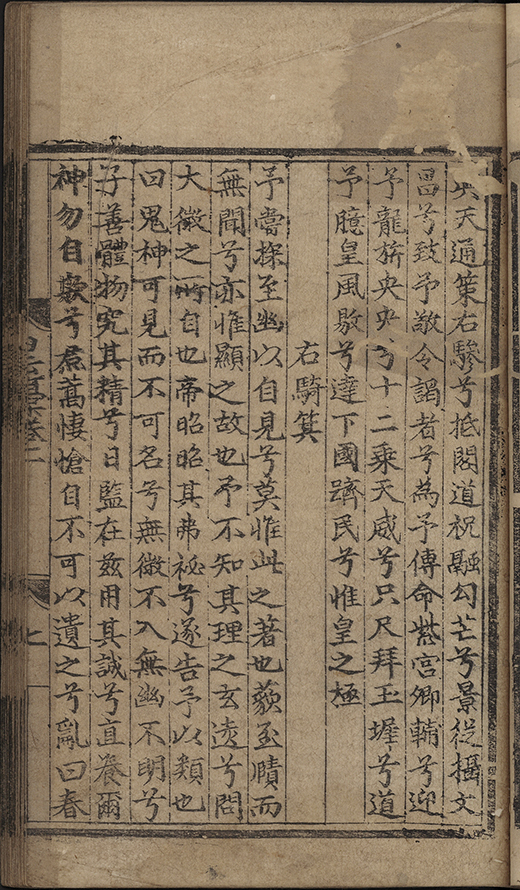 天通策右驂兮抵閣道祝融勾芒兮景從攝文
昌兮致予敬令謁者兮為予傳命紫宮卿輔兮迎
予龍旂央央兮十二乘天威兮只尺拜玉墀兮道
予臆皇風敭兮達下國躋民兮惟皇之極
右騎箕
予嘗探至幽以自見兮莫惟此之著也藐至賾而
無聞兮亦惟顯之故也予不知其理之玄遠兮問
大微之所自也帝昭昭其弗祕兮遂告予以類也
曰鬼神可見而不可名兮無微不入無幽不明兮
子善體物究其精兮日監在茲用其誠兮直養爾
神勿自斁兮焄蒿悽愴自不可以遺之兮亂曰春
卷二
七